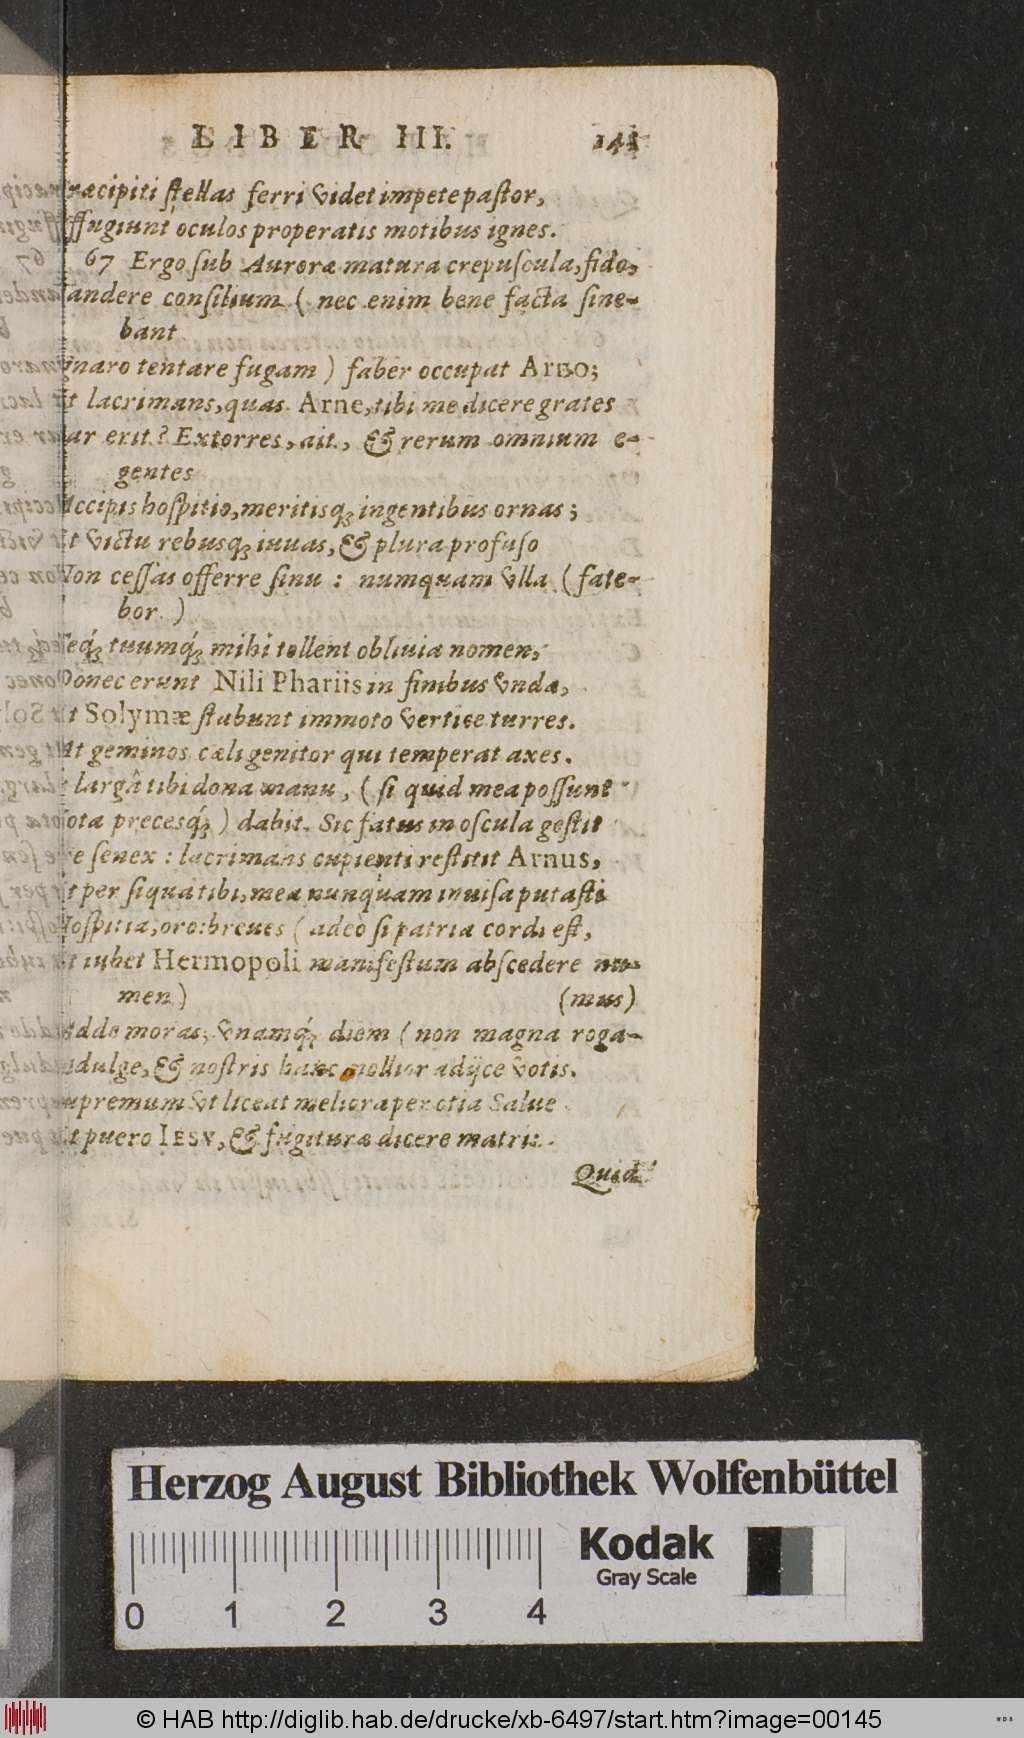 LIBER III. 141
ræcipiti stellas ferri videt impete pastor,
ffugiunt oculos properatis motibus ignes.
67 Ergo sub Auroræ matura crepuscula, fido,
andere consilium ( nec enim bene facta sine-
bant
gnaro tentare fugam ) faber occupat Arno;
t lacrimans, quas Arne, tibi me dicere grates
ar erit? Extorres, ait, & rerum omnium e-
gentes
Accipis hospitio, meritisq; ingentibus ornas;
t victu rebusq; iuuas, & plura profuso
Non cessas offerre sinu : numquam vlla ( fate-
bor )
Teq́; tuumq́; mihi tollent obliuia nomen,
Donec erunt Nili Phariis in finibus vndæ,
t Solymæ stabunt immoto vertice turres.
At geminos cæli genitor qui temperat axes.
largâ tibi dona manu, ( si quid mea possunt
ota precesq́; ) dabit. Sic fatus in oscula gestit
re senex : lacrimans cupienti restitit Arnus,
t per si qua tibi, mea nunquam inuisa putasti
Hospitia, oro: breues ( adeò si patria cordi est,
t iubet Hermopoli manifestum abscedere nu-
men ) (mus)
dde moras; vnamq́; diem ( non magna roga-
ndulge, & nostris hanc mollior adijce votis.
upremum vt liceat meliora per otia Salue
t puero IESV, & fugituræ dicere matri.
Quid
Herzog August Bibliothek Wolfenbüttel
Kodak
Gray Scale
0 1 2 3 4
© HAB http://diglib.hab.de/drucke/xb-6497/start.htm?image=00145